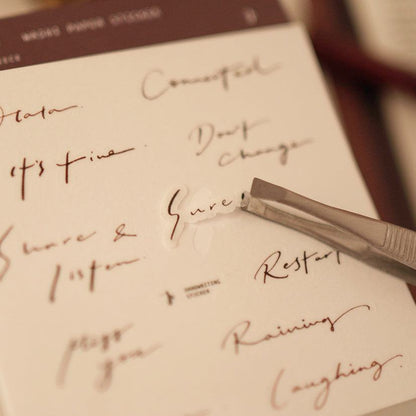 WASHI PAPER STICKER
Connected
It's fine.
Don't
change.
Sure
Share &
listen.
HANDWRITING
STICKER
Restart
Miss
you
Raining
Laughing.